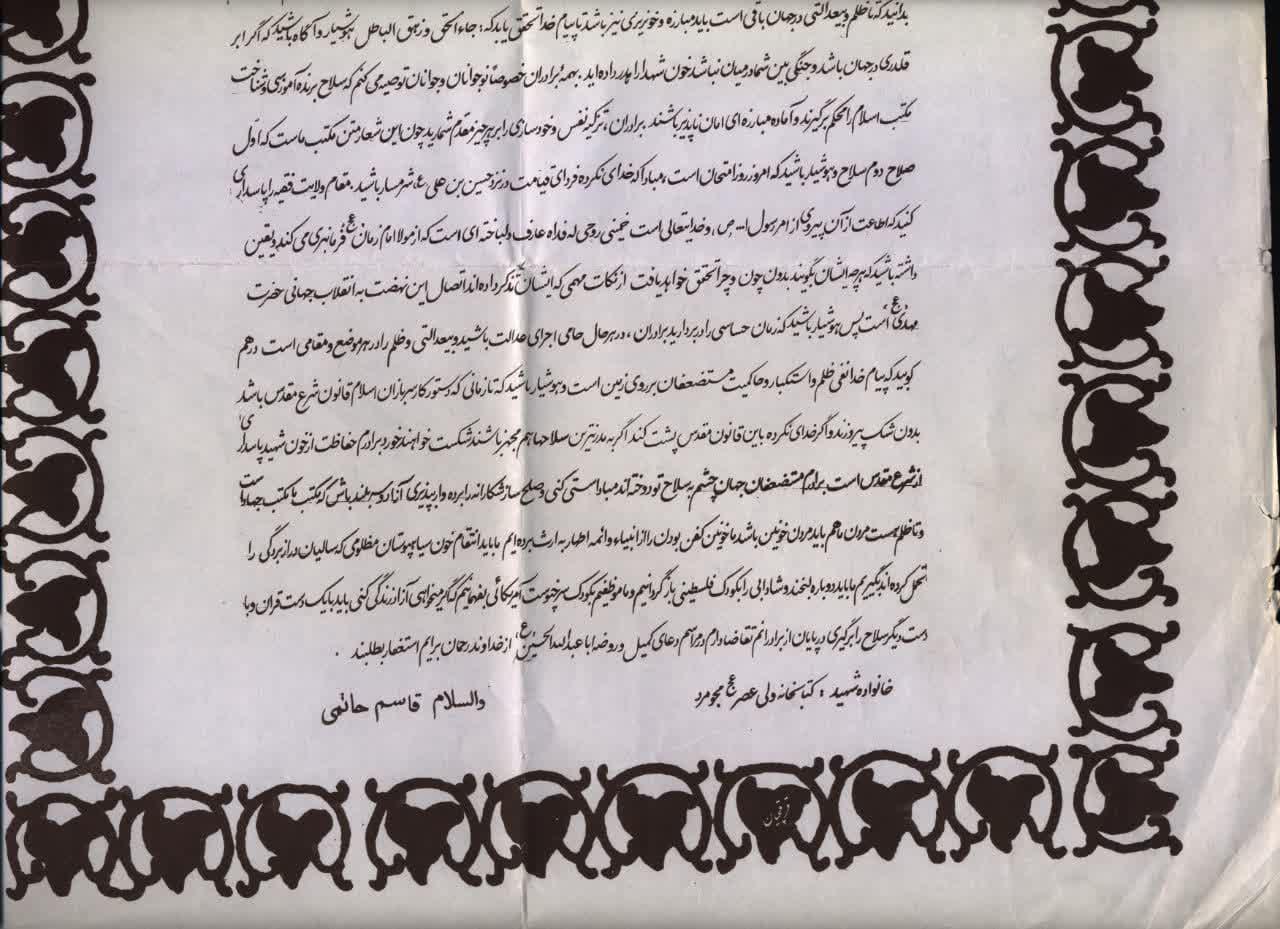 بدانید که تا ظلم و بیعدالتی در جهان باقی است باید مبارزه و خونریزی نیز باشد تا پیام خدا تحقق یابد که: جاء الحق و زهق الباطل هوشیار و آگاه باشید که اگر ابر
قلدری در جهان باشد و جنگی بین شما در میان نباشد خون شهدا را هدر داده اید. بهمهٔ برادران خصوصاً نوجوانان و جوانان توصیه می کنم که سلاح برنده آموزسی و شناخت
مکتب اسلام را محکم برگیرند و آماده مبارزه ای امان ناپذیر باشند برادران، تزکیه نفس و خودسازی را بر هر چیز مقدم شمارید چون این شعار متن مکتب ماست که اول
صلاح دوم سلاح و هوشیار باشید که امروز روز امتحان است، مبادا که خدای نکرده فردای قیامت در نزد حسین بن علی ع، شرمسار باشید. مقام ولایت فقیه را پاسداری
کنید که اطاعت از آن پیروی از امر رسول الله ص، و خدایتعالی است خمینی روحی له فداه عارف دلباخته ای است که از مولا امام زمان عج فرمانبری می کند و یقین
داشته باشید که هر چه ایشان بگویند بدون چون و چرا تحقق خواهد یافت از نکات مهمی که ایشان تذکر داده اند اتصال این نهضت به انقلاب جهانی حضرت
مهدی عج است پس هوشیار باشید که زمان حساسی را در بر دارید برادران، در هر حال حامی اجرای عدالت باشید و بیعدالتی و ظلم را در هر موضع و مقامی است در هم
کوبید که پیام خدا نفی ظلم و استکبار و حاکمیت مستضعفان بر روی زمین است و هوشیار باشید که تا زمانی که دستور کار سربازان اسلام قانون شرع مقدس باشد
بدون شک پیروزند و اگر خدای نکرده باین قانون مقدس پشت کنند اگر به مدرنترین سلاحها هم مجهز باشند شکست خواهند خورد برادرم حفاظت از خون شهید پاسداری
از شرع مقدس است برادرم مستضعفان جهان چشم به سلاح تو دوخته اند مبادا سستی کنی و صلح سازشکارانه را برده وار بپذیری آزاد و سربلند باش که مکتب ما مکتب جهاد است
و تا ظلم هست مردن ما هم باید مردن خونین باشد ما خونین کفن بودن را از انبیاء و ائمه اطهار به ارث برده ایم ما باید انتقام خون سیاهپوستان مظلومی که سالیان دراز بردگی را
تحمل کرده اند بگیریم ما باید دوباره لبخند و شادابی را بکودک فلسطینی بازگردانیم و ما موظفیم بکودک سرخپوست آمریکائی بفهمانیم که اگر میخواهی آزاد زندگی کنی باید با یک دست قرآن و با
دست دیگر سلاح را برگیری در پایان از برادرانم تقاضا دارم در مراسم دعای کمیل و روضه ابا عبدالله الحسین ع، از خداوند رحمان برایم استغفار بطلبند.
خانواده شهید: کتابخانه ولی عصر عج مجومرد
والسلام قاسم حاتمی